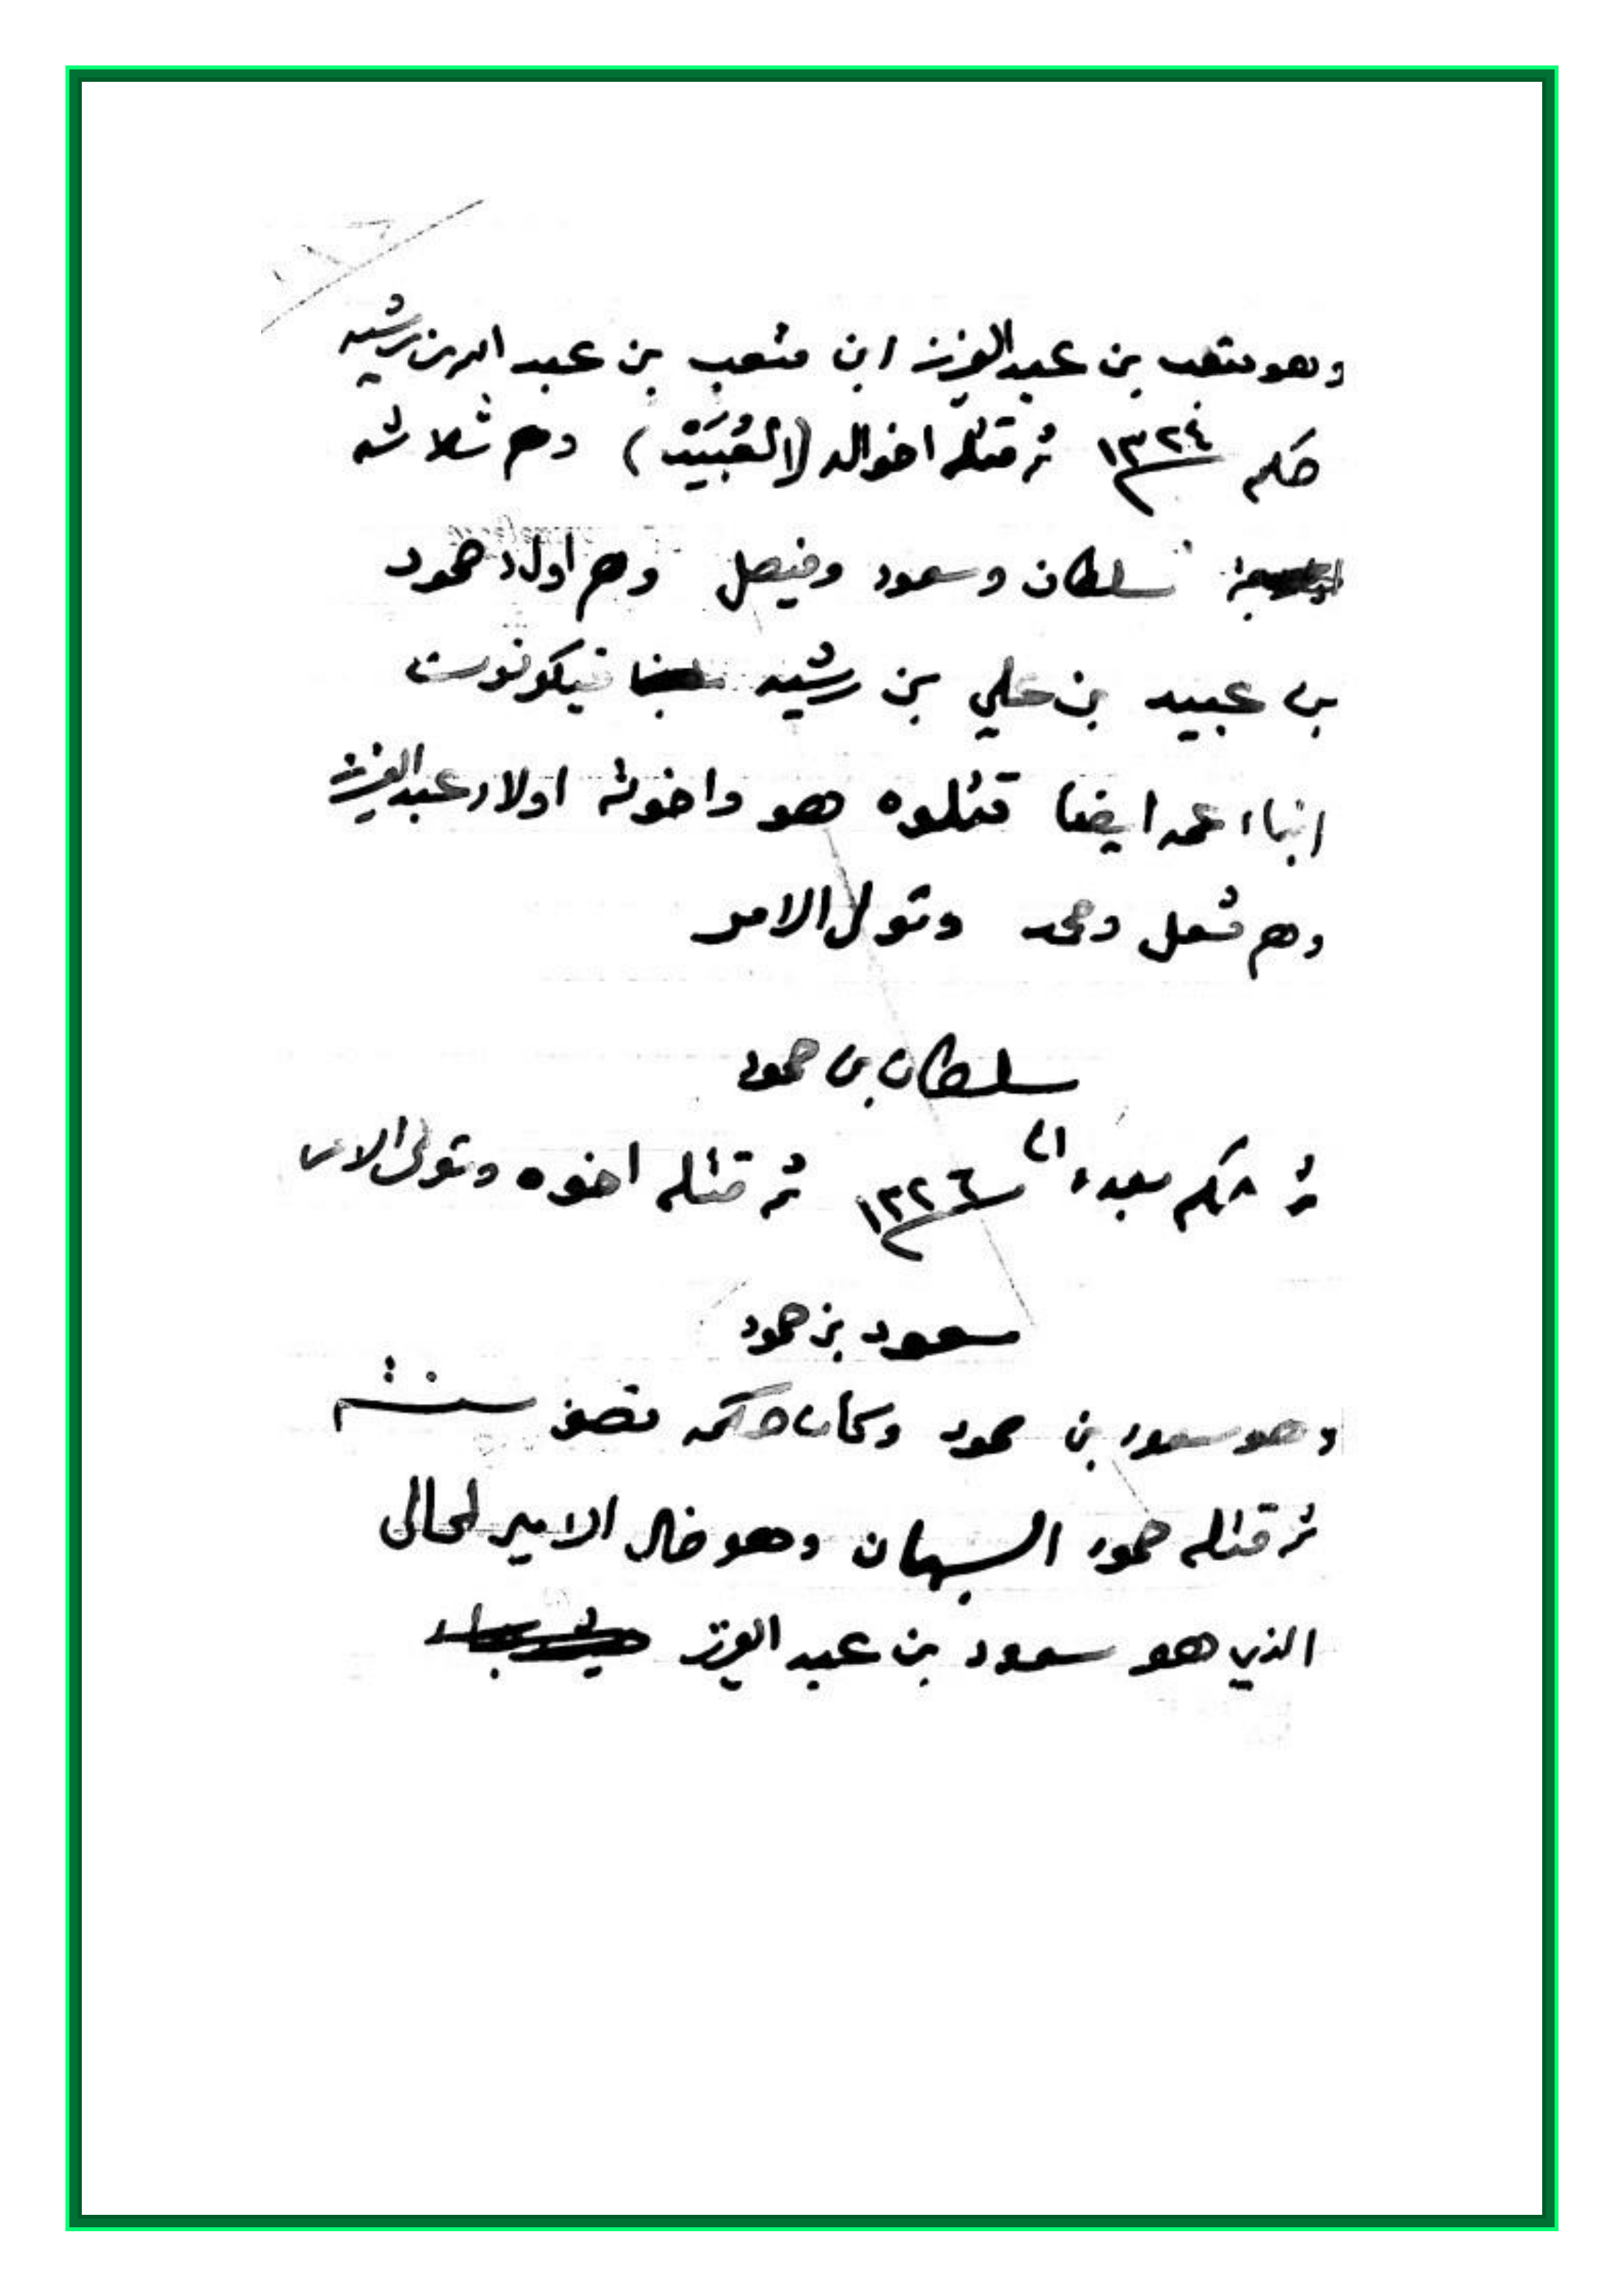 وهو متعب بن عبد العزيز ابن متعب بن عبد الله بن رشيد
حكم ١٣٢٤ ثم قتله اخواله (العُبَيّد) وهم ثلاثه
سلطان وسعود وفيصل وهم اولاد حمود
بن عبيد بن علي بن رشيد فيكونون
ابناء عمه ايضا قتلوه هو واخوته اولاد عبد العزيز
وهم مشعل ومحمد وتولى الامر
سلطان بن حمود
ثم حكم بعده الى ١٣٢٦ ثم قتله اخوه وتولى الامر
سعود بن حمود
وهو سعود بن حمود وكان حكمه نصف سنة
ثم قتله حمود السبهان وهو خال الامير الحالى
الذي هو سعود بن عبد العزيز